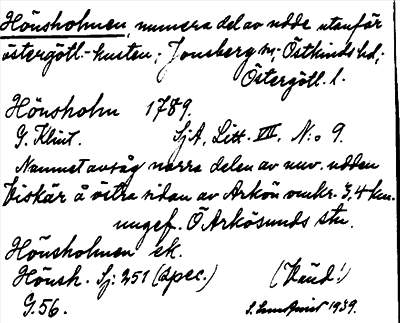 Hönsholmen, numera del av udde utanför
östergötl.-kusten; Jonsberg sn; Östkinds hd;
Östergötl. l.
Hönsholm 1789.
G. Klint. SjA, Litt. VII. N:o 9.
Namnet avsåg norra delen av nuv. udden
Viskär å östra sidan av Arkön omkr. 3,4 km.
ungef. Ö Arkösunds stn.
Hönsholmen ek.
Hönsh. Sj: 251 (spec.) (Känd!)
G. 56. 1939.